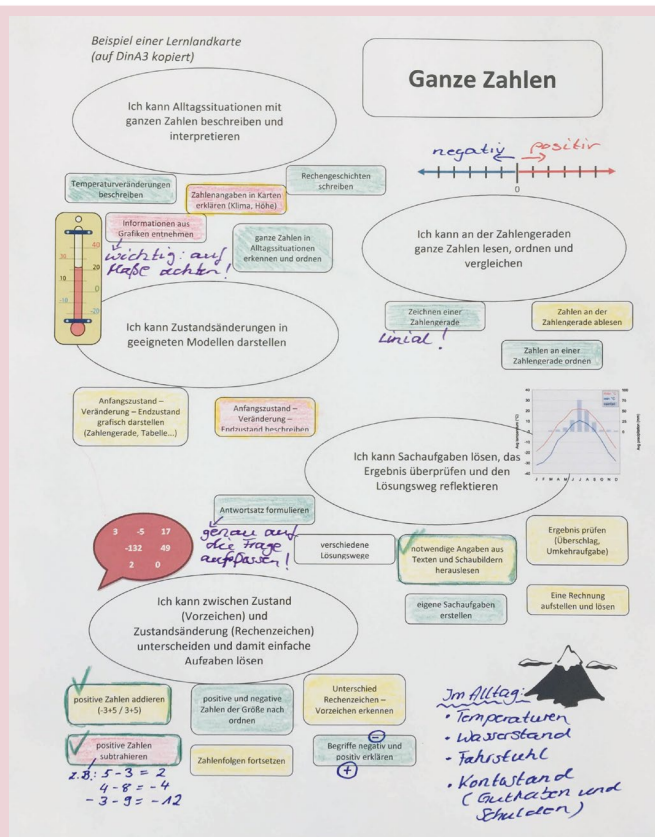 Beispiel einer Lernlandkarte
(auf DinA3 kopiert)
Ganze Zahlen
Ich kann Alltagssituationen mit
ganzen Zahlen beschreiben und
interpretieren
negativ positiv
0
Temperaturveränderungen
beschreiben
Zahlenangaben in Karten
erklären (Klima, Höhe)
Rechengeschichten
schreiben
Informationen aus
Grafiken entnehmen
wichtig: auf
Maße achten!
ganze Zahlen in
Alltagssituationen
erkennen und ordnen
Ich kann an der Zahlengeraden
ganze Zahlen lesen, ordnen und
vergleichen
Zeichnen einer
Zahlengerade
Linial!
Zahlen an der
Zahlengerade ablesen
Zahlen an einer
Zahlengerade ordnen
40
30
20
10
0
-10
-20
Ich kann Zustandsänderungen in
geeigneten Modellen darstellen
Anfangszustand –
Veränderung – Endzustand
grafisch darstellen
(Zahlengerade, Tabelle...)
Anfangszustand –
Veränderung –
Endzustand beschreiben
Ich kann Sachaufgaben lösen, das
Ergebnis überprüfen und den
Lösungsweg reflektieren
J F M A M J J A S O N D
Antwortsatz formulieren
genau auf
die Frage
aufpassen!
verschiedene
Lösungswege
notwendige Angaben aus
Texten und Schaubildern
herauslesen
Ergebnis prüfen
(Überschlag,
Umkehraufgabe)
eigene Sachaufgaben
erstellen
Eine Rechnung
aufstellen und lösen
3 -5 17
-132 49
2 0
Ich kann zwischen Zustand
(Vorzeichen) und
Zustandsänderung (Rechenzeichen)
unterscheiden und damit einfache
Aufgaben lösen
positive Zahlen addieren
(-3+5 / 3+5)
positive und negative
Zahlen der Größe nach
ordnen
Unterschied
Rechenzeichen –
Vorzeichen erkennen
positive Zahlen
subtrahieren
z.B.: 5 - 3 = 2
4 - 8 = -4
- 3 - 9 = -12
Zahlenfolgen fortsetzen
Begriffe negativ und
positiv erklären
-
+
Im Alltag:
• Temperaturen
• Wasserstand
• Fahrstuhl
• Kontostand
(Guthaben und
Schulden)